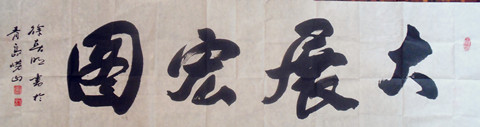 大展宏图
徐吴明书于
青岛崂山